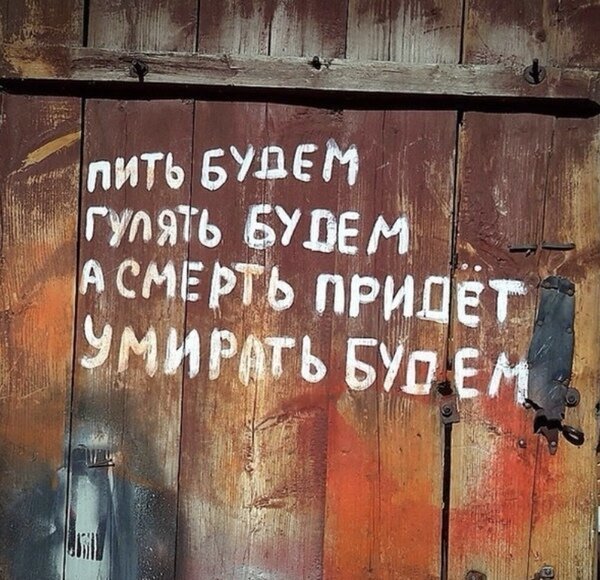 ПИТЬ БУДЕМ
ГУЛЯТЬ БУДЕМ
А СМЕРТЬ ПРИДЁТ
УМИРАТЬ БУДЕМ